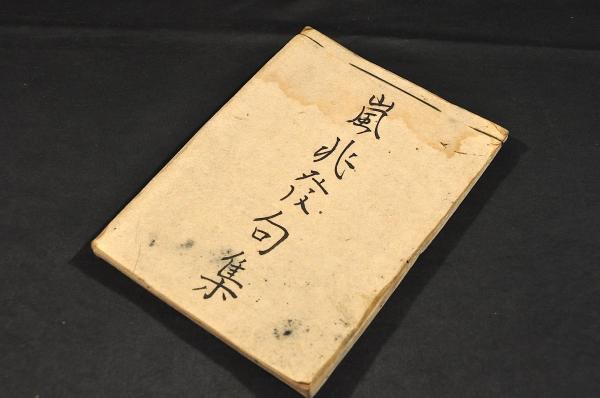 嵐兆発句集